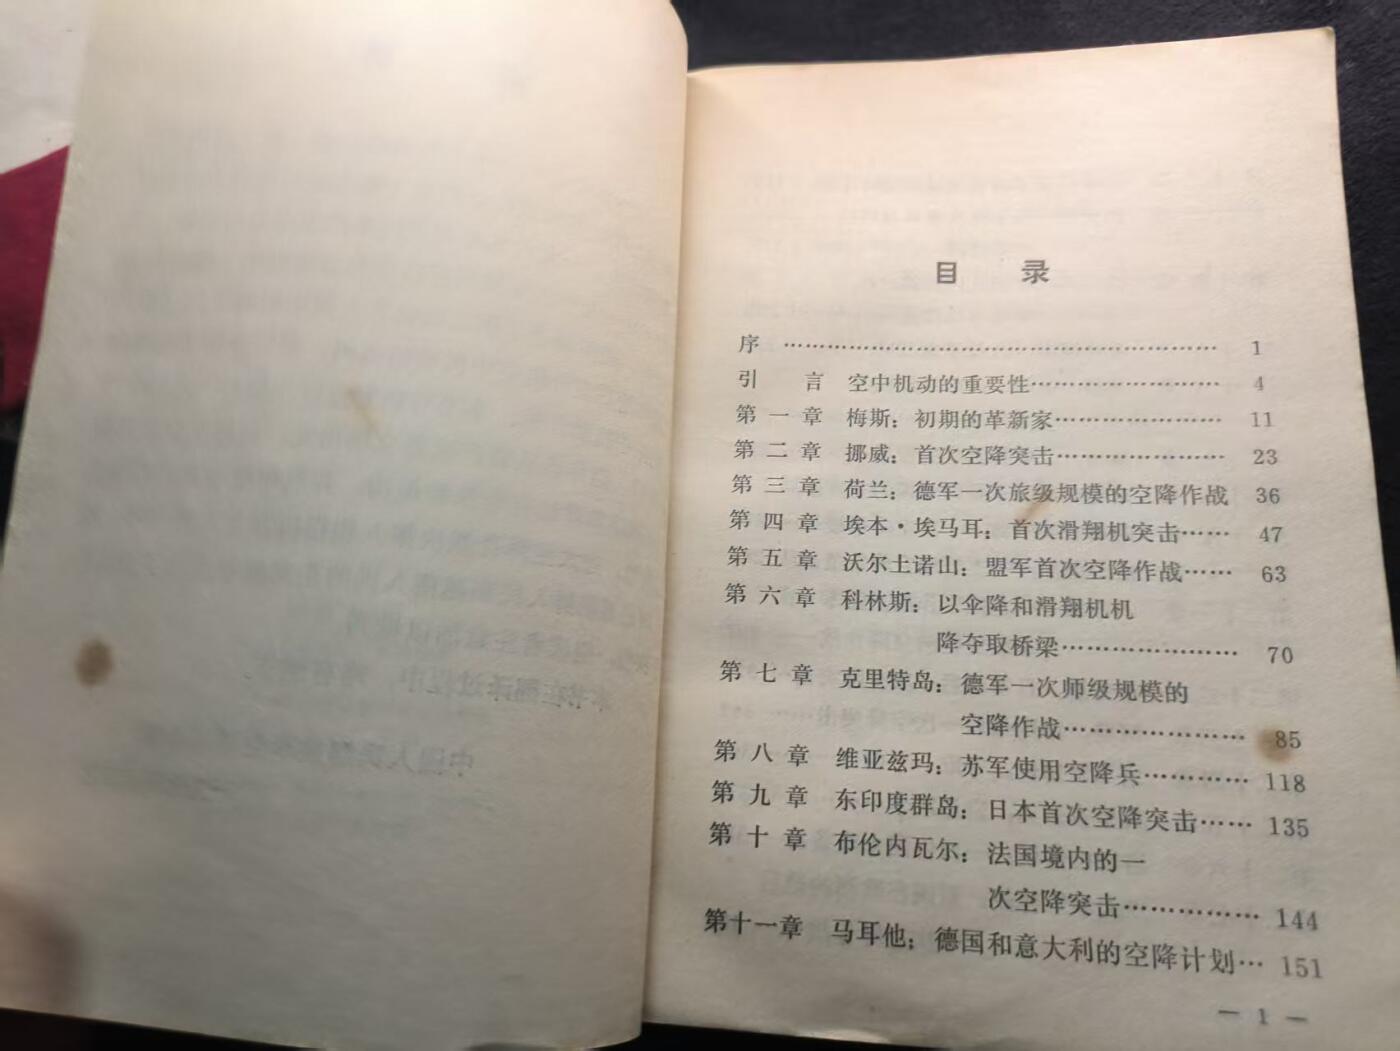 目 录
序 ……………………………………………… 1
引 言 空中机动的重要性………………… 4
第 一 章 梅斯：初期的革新家……………… 11
第 二 章 挪威：首次空降突击……………… 23
第 三 章 荷兰：德军一次旅级规模的空降作战 36
第 四 章 埃本·埃马耳：首次滑翔机突击…… 47
第 五 章 沃尔土诺山：盟军首次空降作战…… 63
第 六 章 科林斯：以伞降和滑翔机机
降夺取桥梁………………… 70
第 七 章 克里特岛：德军一次师级规模的
空降作战………………… 85
第 八 章 维亚兹玛：苏军使用空降兵………… 118
第 九 章 东印度群岛：日本首次空降突击…… 135
第 十 章 布伦内瓦尔：法国境内的一
次空降突击…………… 144
第十一章 马耳他：德国和意大利的空降计划… 151
— 1 —